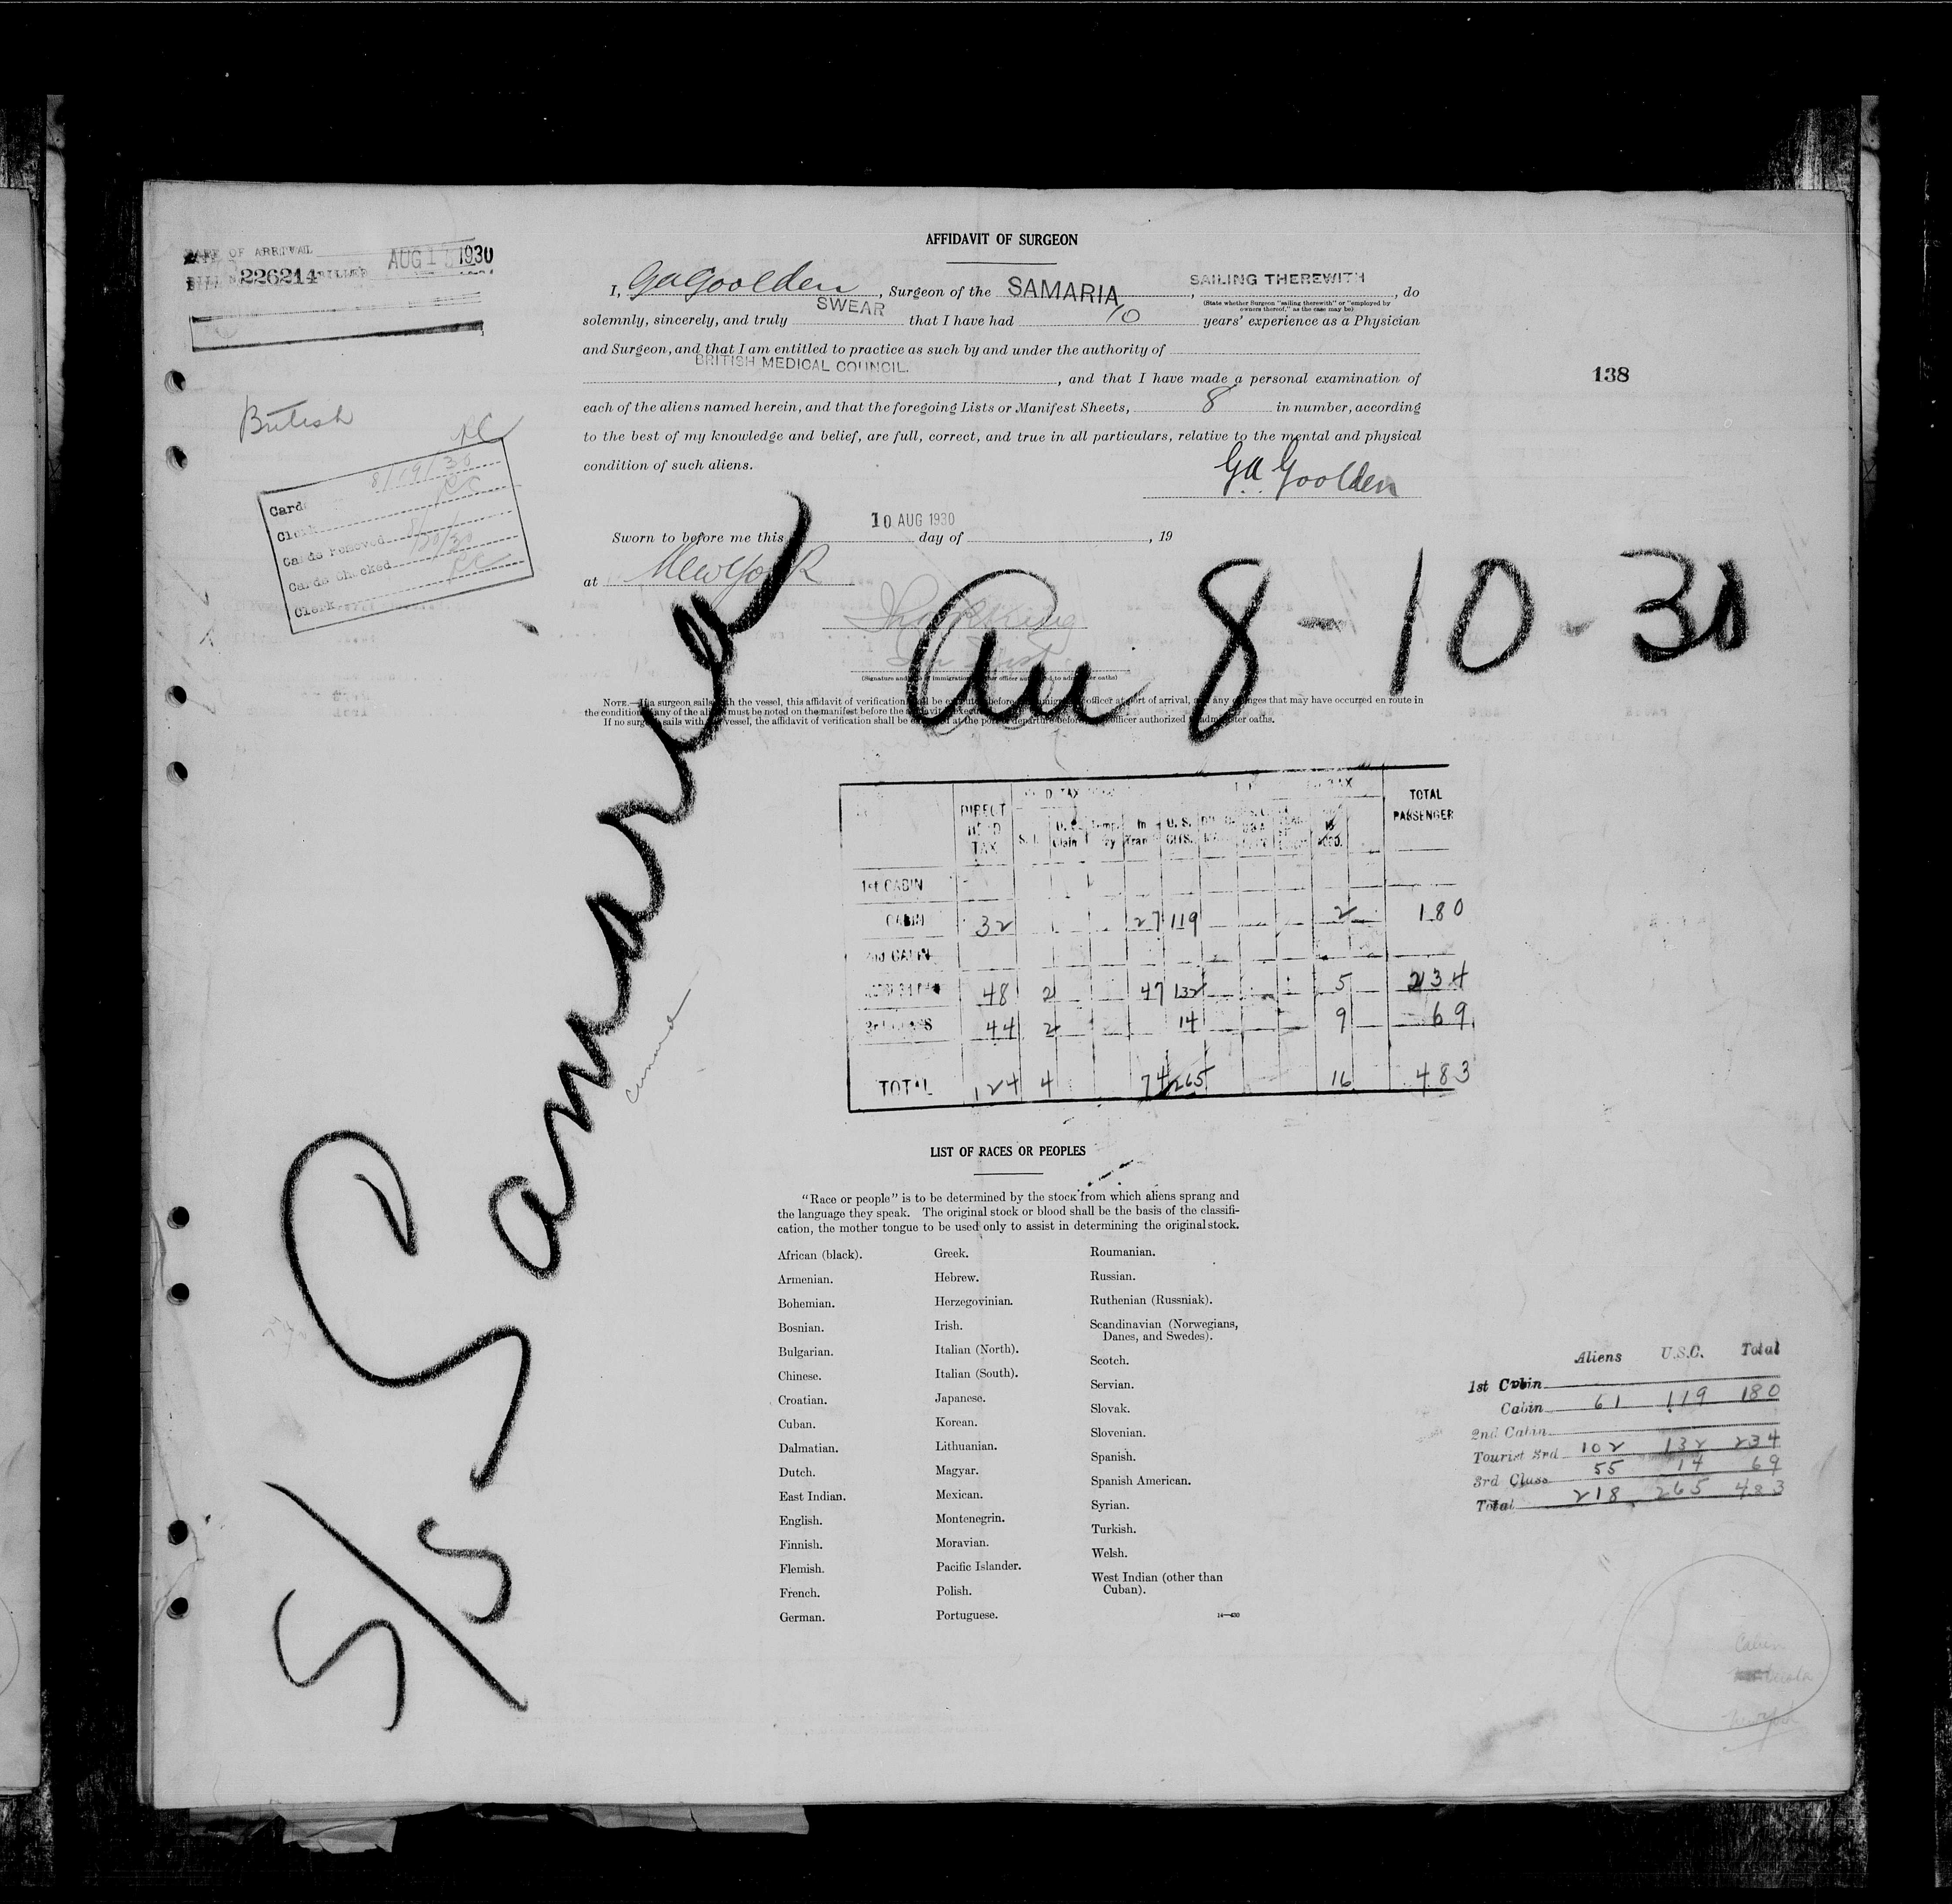 AFFIDAVIT OF SURGEON
DATE OF ARRIVAL AUG 1 1930
BILL No. 226214
I, G A Goolden, Surgeon of the SAMARIA, SAILING THEREWITH, do
(State whether Surgeon "sailing therewith" or "employed by
owners thereof," as the case may be)
solemnly, sincerely, and truly SWEAR that I have had 10 years' experience as a Physician
and Surgeon, and that I am entitled to practice as such by and under the authority of
BRITISH MEDICAL COUNCIL. , and that I have made a personal examination of
each of the aliens named herein, and that the foregoing Lists or Manifest Sheets, 8 in number, according
to the best of my knowledge and belief, are full, correct, and true in all particulars, relative to the mental and physical
condition of such aliens.
G.A. Goolden
138
British
RC
Cards 8/19/30
Clerk RC
Cards Removed 8/20/30
Cards Checked RC
Clerk
Sworn to before me this 10 AUG 1930 day of , 19
at New York
Arr 8-10-30
S/S Samaria
Cunard
NOTE.—If a surgeon sails with the vessel, this affidavit of verification shall be executed before immigration officer at port of arrival, and any changes that may have occurred en route in
the condition of any of the aliens must be noted on the manifest before the affidavit is executed
If no surgeon sails with the vessel, the affidavit of verification shall be executed at the port of departure before officer authorized to administer oaths.
DIRECT HEAD TAX
In Tran
U. S. CITS.
TOTAL PASSENGER
1st CABIN
CABIN 32 27 119 2 180
2nd CABIN
48 2 47 132 5 234
3rd CLASS 44 2 14 9 69
TOTAL 124 4 74 265 16 483
LIST OF RACES OR PEOPLES
"Race or people" is to be determined by the stock from which aliens sprang and
the language they speak. The original stock or blood shall be the basis of the classifi-
cation, the mother tongue to be used only to assist in determining the original stock.
African (black).
Armenian.
Bohemian.
Bosnian.
Bulgarian.
Chinese.
Croatian.
Cuban.
Dalmatian.
Dutch.
East Indian.
English.
Finnish.
Flemish.
French.
German.
Greek.
Hebrew.
Herzegovinian.
Irish.
Italian (North).
Italian (South).
Japanese.
Korean.
Lithuanian.
Magyar.
Mexican.
Montenegrin.
Moravian.
Pacific Islander.
Polish.
Portuguese.
Roumanian.
Russian.
Ruthenian (Russniak).
Scandinavian (Norwegians,
Danes, and Swedes).
Scotch.
Servian.
Slovak.
Slovenian.
Spanish.
Spanish American.
Syrian.
Turkish.
Welsh.
West Indian (other than
Cuban).
Aliens U.S.C. Total
1st Cabin
Cabin 61 119 180
2nd Cabin
Tourist 3rd 102 132 234
3rd Class 55 14 69
Total 218 265 483
Cabin
New York